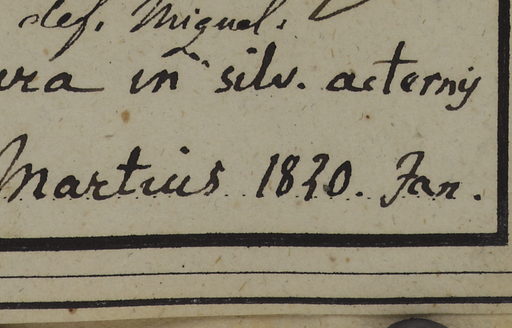 def. Miquel.
ura in silv. aeternis
Martius 1820. Jan.